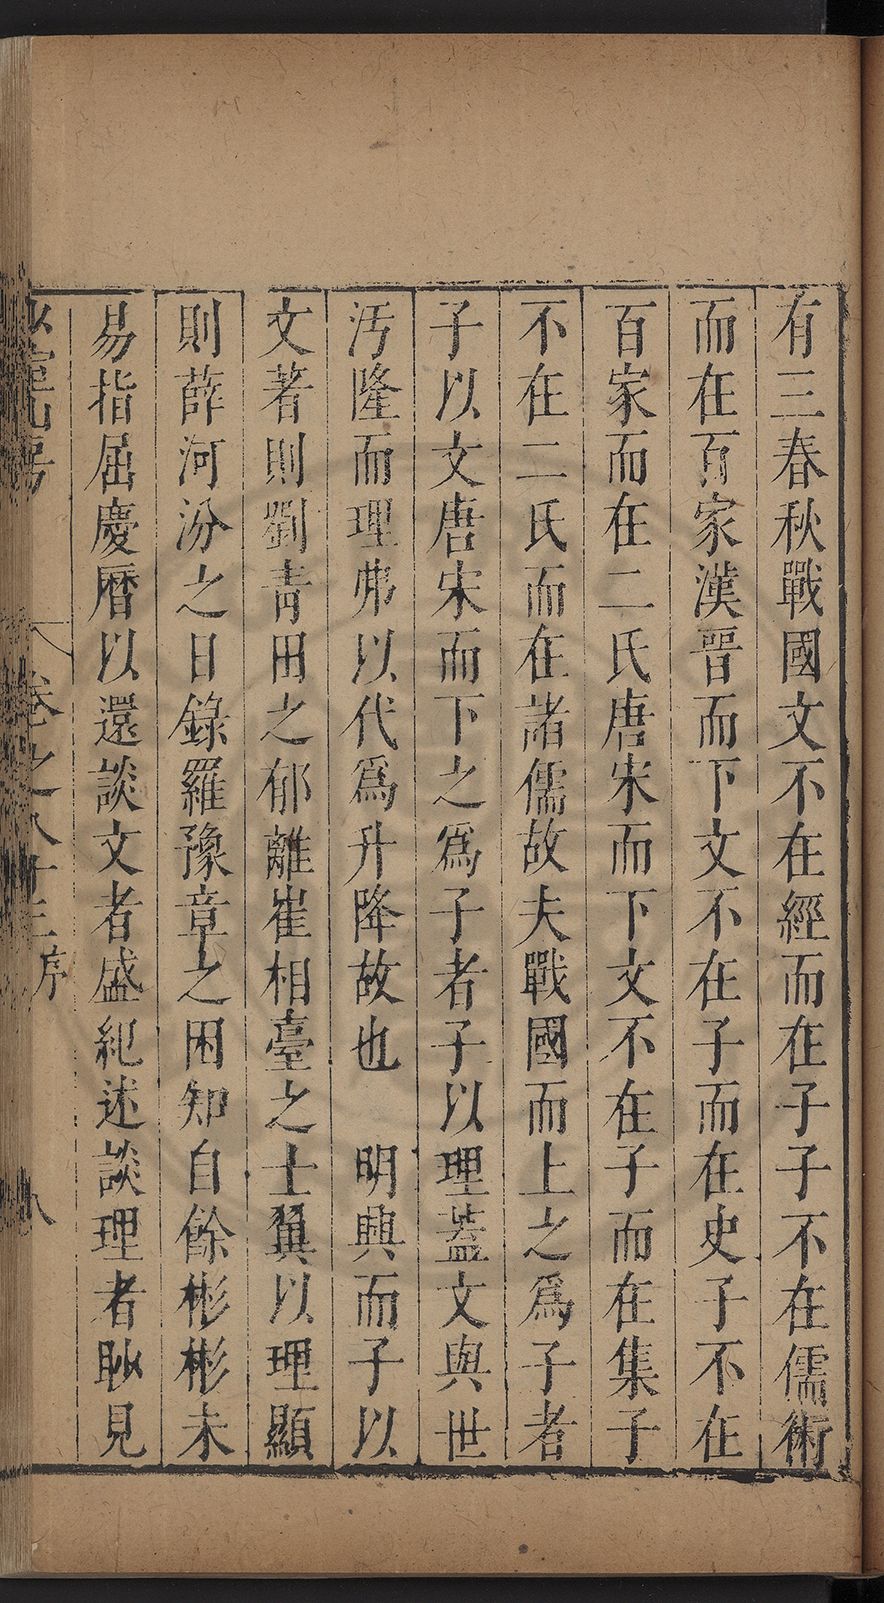 有三春秋戰國文不在經而在子子不在儒術
而在百家漢晉而下文不在子而在史子不在
百家而在二氏唐宋而下文不在子而在集子
不在二氏而在諸儒故夫戰國而上之爲子者
子以文唐宋而下之爲子者子以理蓋文與世
汚隆而理弗以代爲升降故也　明興而子以
文著則劉青田之郁離崔相臺之士翼以理顯
則薛河汾之日錄羅豫章之困知自餘彬彬未
易指屈慶曆以還談文者盛紀述談理者眇見
卷之八十三　序　八